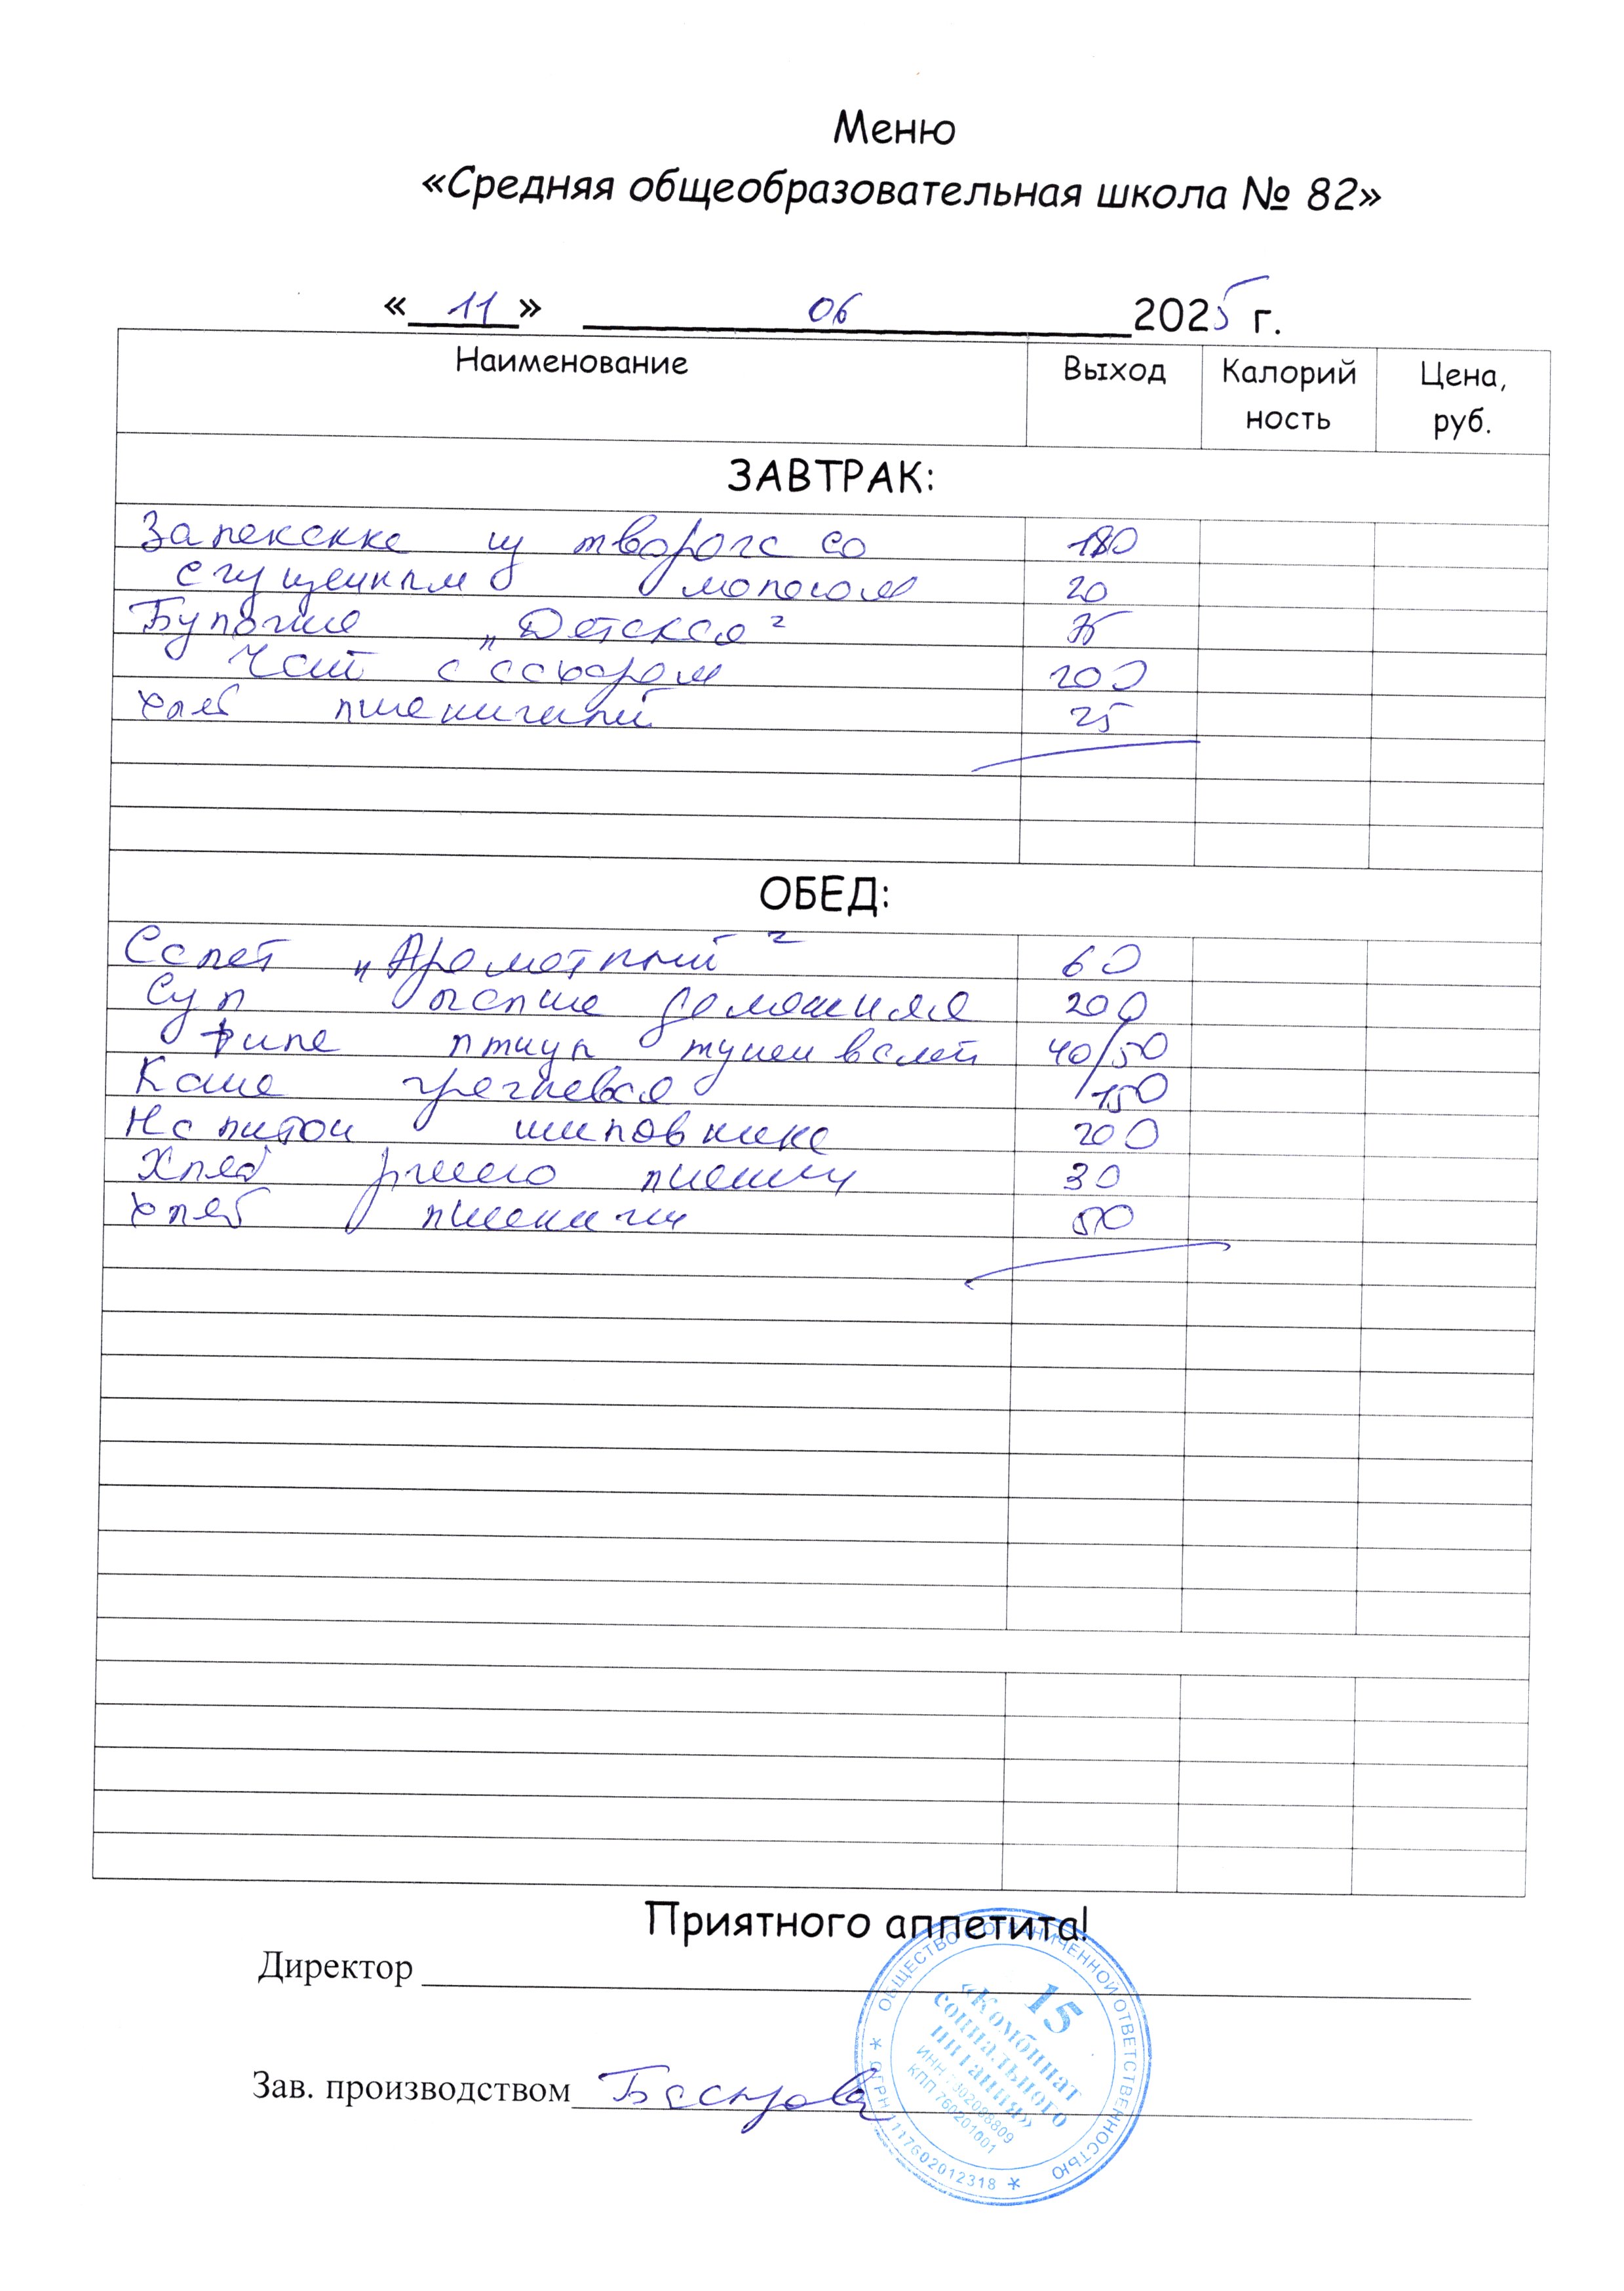 Меню
«Средняя общеобразовательная школа № 82»
« 11 » 06 2025 г.
Наименование Выход Калорий Цена,
ность руб.
ЗАВТРАК:
Запеканка из творога со 180
сгущенным молоком 20
Булочка „Детская" 75
Чай с сахаром 200
хлеб пшеничный 25
ОБЕД:
Салат „Ароматный" 60
Суп лапша домашняя 200
Филе птицы тушен в 40/50
Каша гречневая 150
Напиток шиповника 200
Хлеб 30
хлеб 50
Приятного аппетита!
Директор
Зав. производством
ОБЩЕСТВО С ОГРАНИЧЕННОЙ ОТВЕТСТВЕННОСТЬЮ
15
«Комбинат
социального
питания»
КПП 760201001
ОГРН 1117602012318